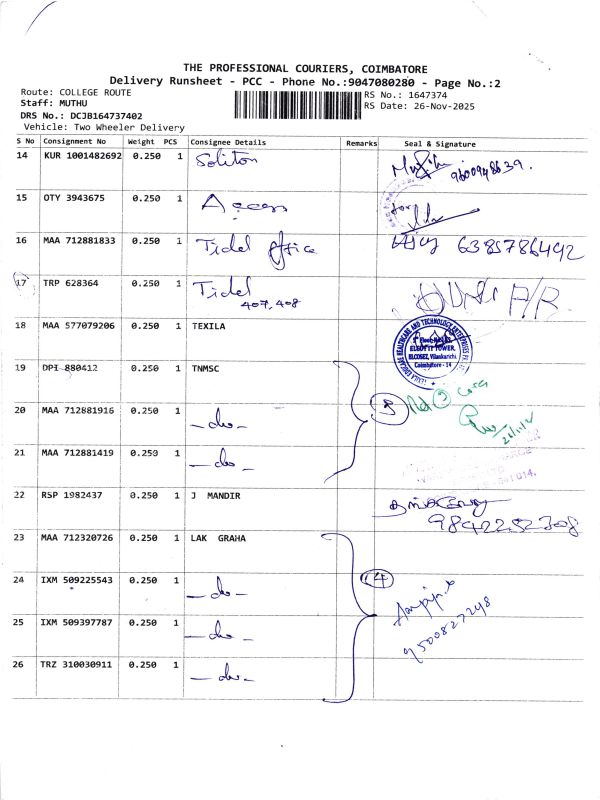 THE PROFESSIONAL COURIERS, COIMBATORE
Delivery Runsheet - PCC - Phone No.:9047080280 - Page No.:2
Route: COLLEGE ROUTE
Staff: MUTHU
DRS No.: DCJB164737402
Vehicle: Two Wheeler Delivery
RS No.: 1647374
RS Date: 26-Nov-2025
S No Consignment No Weight PCS Consignee Details Remarks Seal & Signature
14 KUR 1001482692 0.250 1 Soliton 9600948639.
15 OTY 3943675 0.250 1 Access for
16 MAA 712881833 0.250 1 Tidel office Vijay 6385786492
17 TRP 628364 0.250 1 Tidel
407, 408
18 MAA 577079206 0.250 1 TEXILA
ELCOT IT TOWER,
ELCOSEZ, Vilankurichi,
Coimbatore - 14
19 DPI 880412 0.250 1 TNMSC
20 MAA 712881916 0.250 1 - do - 3
21 MAA 712881419 0.250 1 - do -
22 RSP 1982437 0.250 1 J MANDIR
9842252308
23 MAA 712320726 0.250 1 LAK GRAHA
24 IXM 509225543 0.250 1 - do - 4
25 IXM 509397787 0.250 1 - do - 9500827248
26 TRZ 310030911 0.250 1 - do -